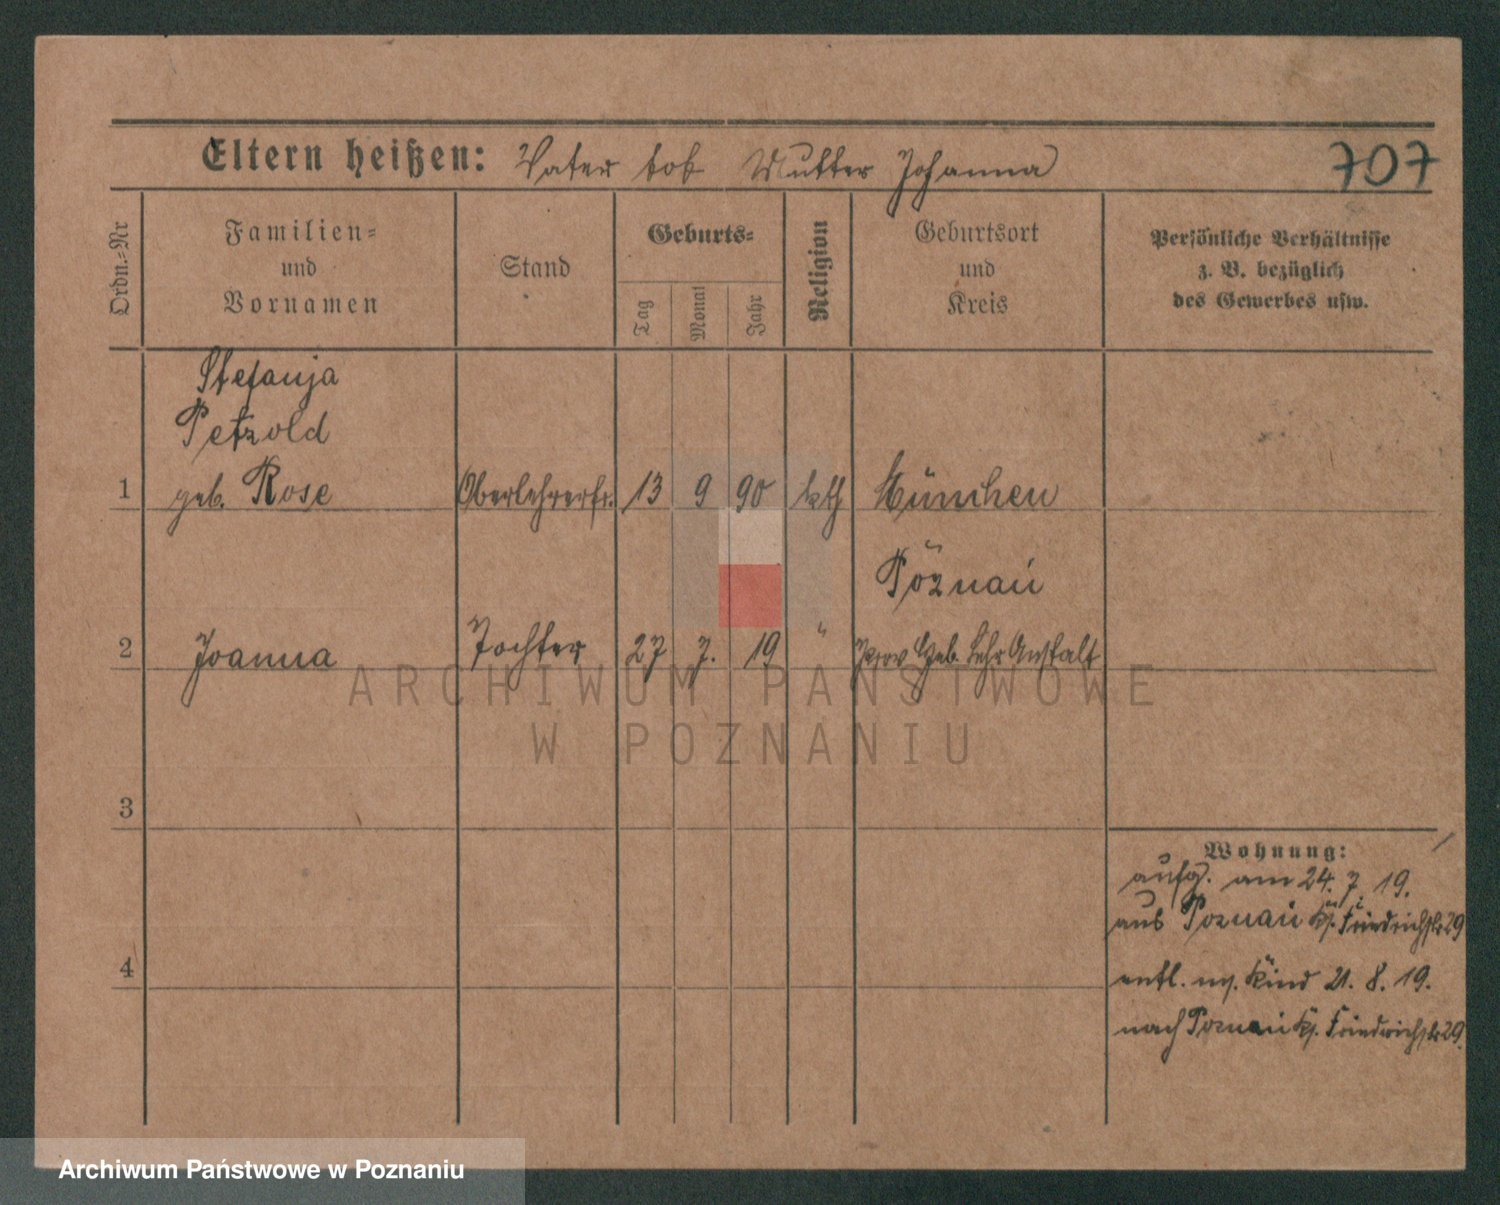 Eltern heißen: Vater tot Mutter Johanna 707
Ordn.-Nr
Familien-
und
Vornamen
Stand
Geburts-
Tag
Monat
Jahr
Religion
Geburtsort
und
Kreis
Persönliche Verhältnisse
z. B. bezüglich
des Gewerbes usw.
Stefanja
Petzold
1 geb. Rose Oberlehrerfr. 13 9 90 kth München
Poznań
2 Joanna Tochter 27 7. 19 " Prov Heb. Lehr Anstalt
3
Wohnung:
aufg. am 24. 7. 19.
aus Poznań Friedrichstr 29
4
entl. m. Kind 21. 8. 19.
nach Poznań Friedrichstr 29.
ARCHIWUM PAŃSTWOWE
W POZNANIU
Archiwum Państwowe w Poznaniu